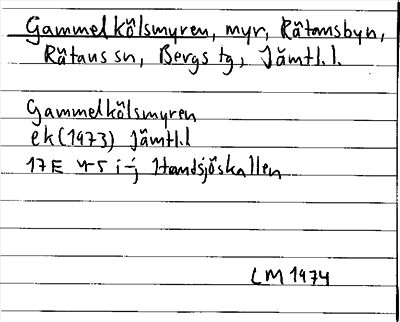 Gammelkölsmyren, myr, Rätansbyn,
Rätans sn, Bergs tg, Jämtl.l.
Gammelkölsmyren
ek (1973) Jämtl.l
17E 4-5 i-j Handsjöskallen
LM 1974